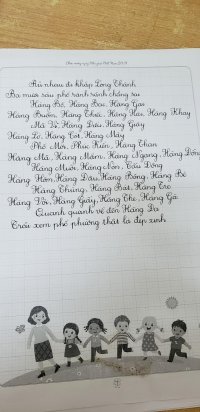 Rủ nhau đi khắp Long Thành
Ba mươi sáu phố rành rành chẳng sai
Hàng Bồ, Hàng Bạc, Hàng Gai
Hàng Buồm, Hàng Thiếc, Hàng Hài, Hàng Khay
Mã Vĩ, Hàng Điếu, Hàng Giày
Hàng Lờ, Hàng Cót, Hàng Mây
Phố Mới, Phúc Kiến, Hàng Than
Hàng Mã, Hàng Mắm, Hàng Ngang, Hàng Đồng
Hàng Muối, Hàng Nón, Cầu Đông
Hàng Hòm, Hàng Đậu, Hàng Bông, Hàng Bè
Hàng Thùng, Hàng Bát, Hàng Tre
Hàng Vôi, Hàng Giấy, Hàng The, Hàng Gà
Quanh quanh về đến Hàng Da
Trải xem phố phường thật là đẹp xinh